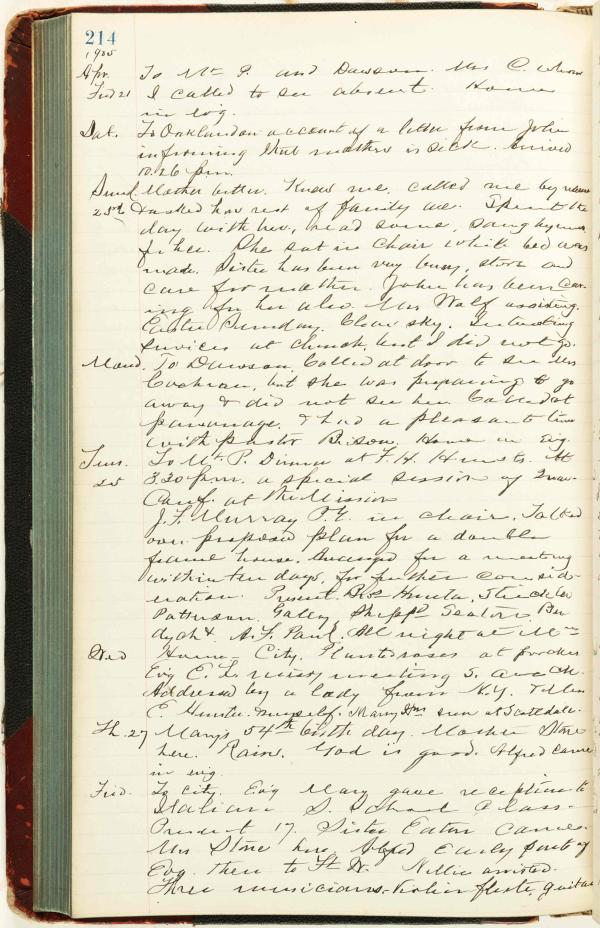 214
1905
Apr. To Mt P. and Dawson. Mrs C. whom
Frid 21 I called to see absent. Home
in evg.
Sat. To Oakland on account of a letter from John
informing that mother is sick. Arrived
10.26 p.m.
Sund. Mother better. Knew me, called me by name
23rd & asked how rest of family are. Spent the
day with her, read some, sang hymns
for her. She sat in chair while bed was
made. Sister has been very busy, store and
care for mother. John has been car-
ing for her also. Mrs Wolf assisting.
Easter Sunday. Clear sky. Interesting
services at church, but I did not go.
Mond. To Dawson, Called at door to see Mrs
Cochran, but she was preparing to go
away & did not see her. Called at
parsonage, & had a pleasant time
with pastor. Home in evg.
Tues. To Mt. P. Dinner at F. H. At
25 3.30 p.m. a special session of Quar.
Conf. at the Mission
J. F. Murray P.E. in chair. Talked
over proposed plan for a double
frame house. Arranged for a meeting
within ten days, for further consid-
eration. Present.
Patterson, Seaton
A. F. Paul. All night at
Wed Home - City. Planted roses at
Evg E. L. meeting 5. ave Ch.
Addressed by a lady from N.Y.
E. myself. Mary seen at Scottdale.
Th. 27 Marys 54th birth day. Mother Stone
here. Rain. God is good. Alfred came
in evg.
Frid. To city. Evg Mary gave reception to
Italian S. School Class-
Present 17. Sister Eaton came.
Mrs Stone here. Alfred Early part of
Evg. then to Ft. W. Nellie assisted.
Three musicians - violin flute, guitar